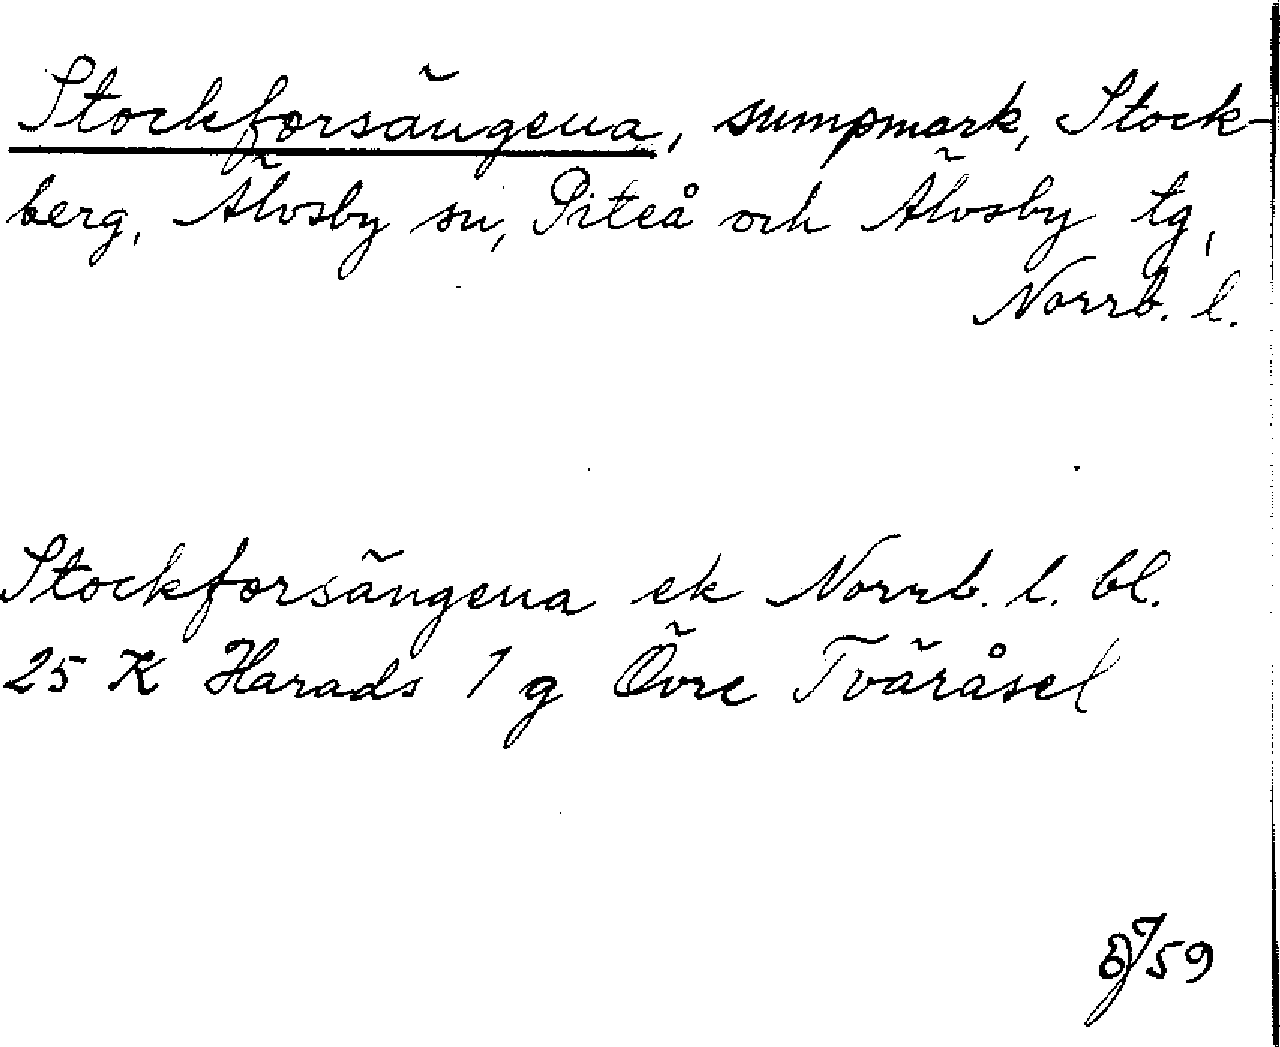 Stockforsängena, sumpmark, Stock-
berg, Älvsby sn, Piteå och Älvsby tg,
Norrb. l.
Stockforsängena ek Norrb. l. bl.
25 K Harads 1 g Övre Tväråsel